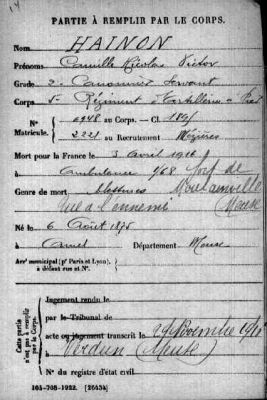 PARTIE À REMPLIR PAR LE CORPS.
Nom HAINON
Prénoms Camille Nicolas Victor
Grade 2e Canonnier Servant
Corps 5e Régiment d'Artillerie à Pied
N° 6948 au Corps. — Cl. 1895
Matricule. 2221 au Recrutement Mézières
Mort pour la France le 3 avril 1916
à Ambulance 1/68 fort de
Genre de mort blessures Moulainville
tué à l'ennemi (Meuse)
Né le 6 Août 1875
à Département Meuse
Arrt municipal (pr Paris et Lyon),
à défaut rue et N°.
Cette partie
n'est pas à remplir
par le Corps.
Jugement rendu le
par le Tribunal de
acte ou jugement transcrit le Novembre
à Verdun (Meuse)
N° du registre d'état civil